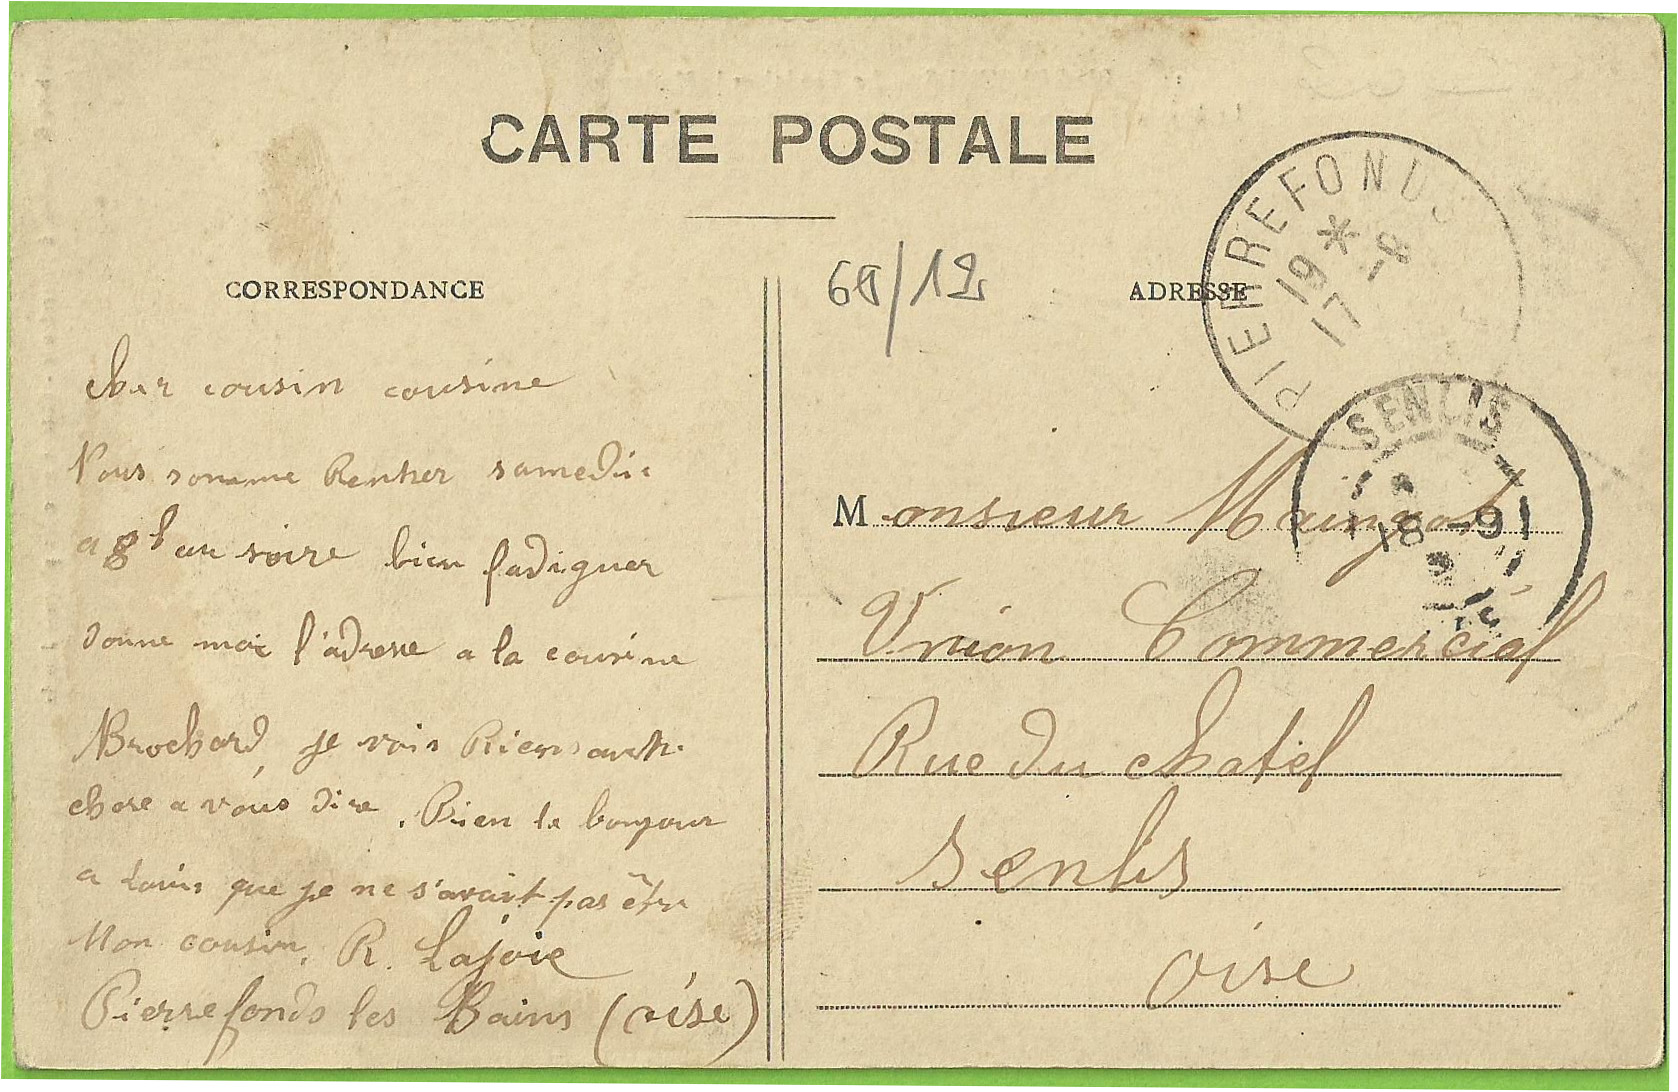 CARTE POSTALE
CORRESPONDANCE
ADRESSE
60/12
PIERREFONDS
19 * 17 -8
SENLIS
18 -9
cher cousin cousine
Nous somme Rentrer samedi
a 8h au soire bien fadiguer
donne moi l'adresse a la cousine
Brochard, je vois Rien autre
chose a vous dire. Bien le bonjour
a Louis que je ne s'avait pas être
Mon cousin. R. Lajoie
Pierrefonds les Bains (oise)
Monsieur Maingot
Union Commercial
Rue du chatel
Senlis
oise